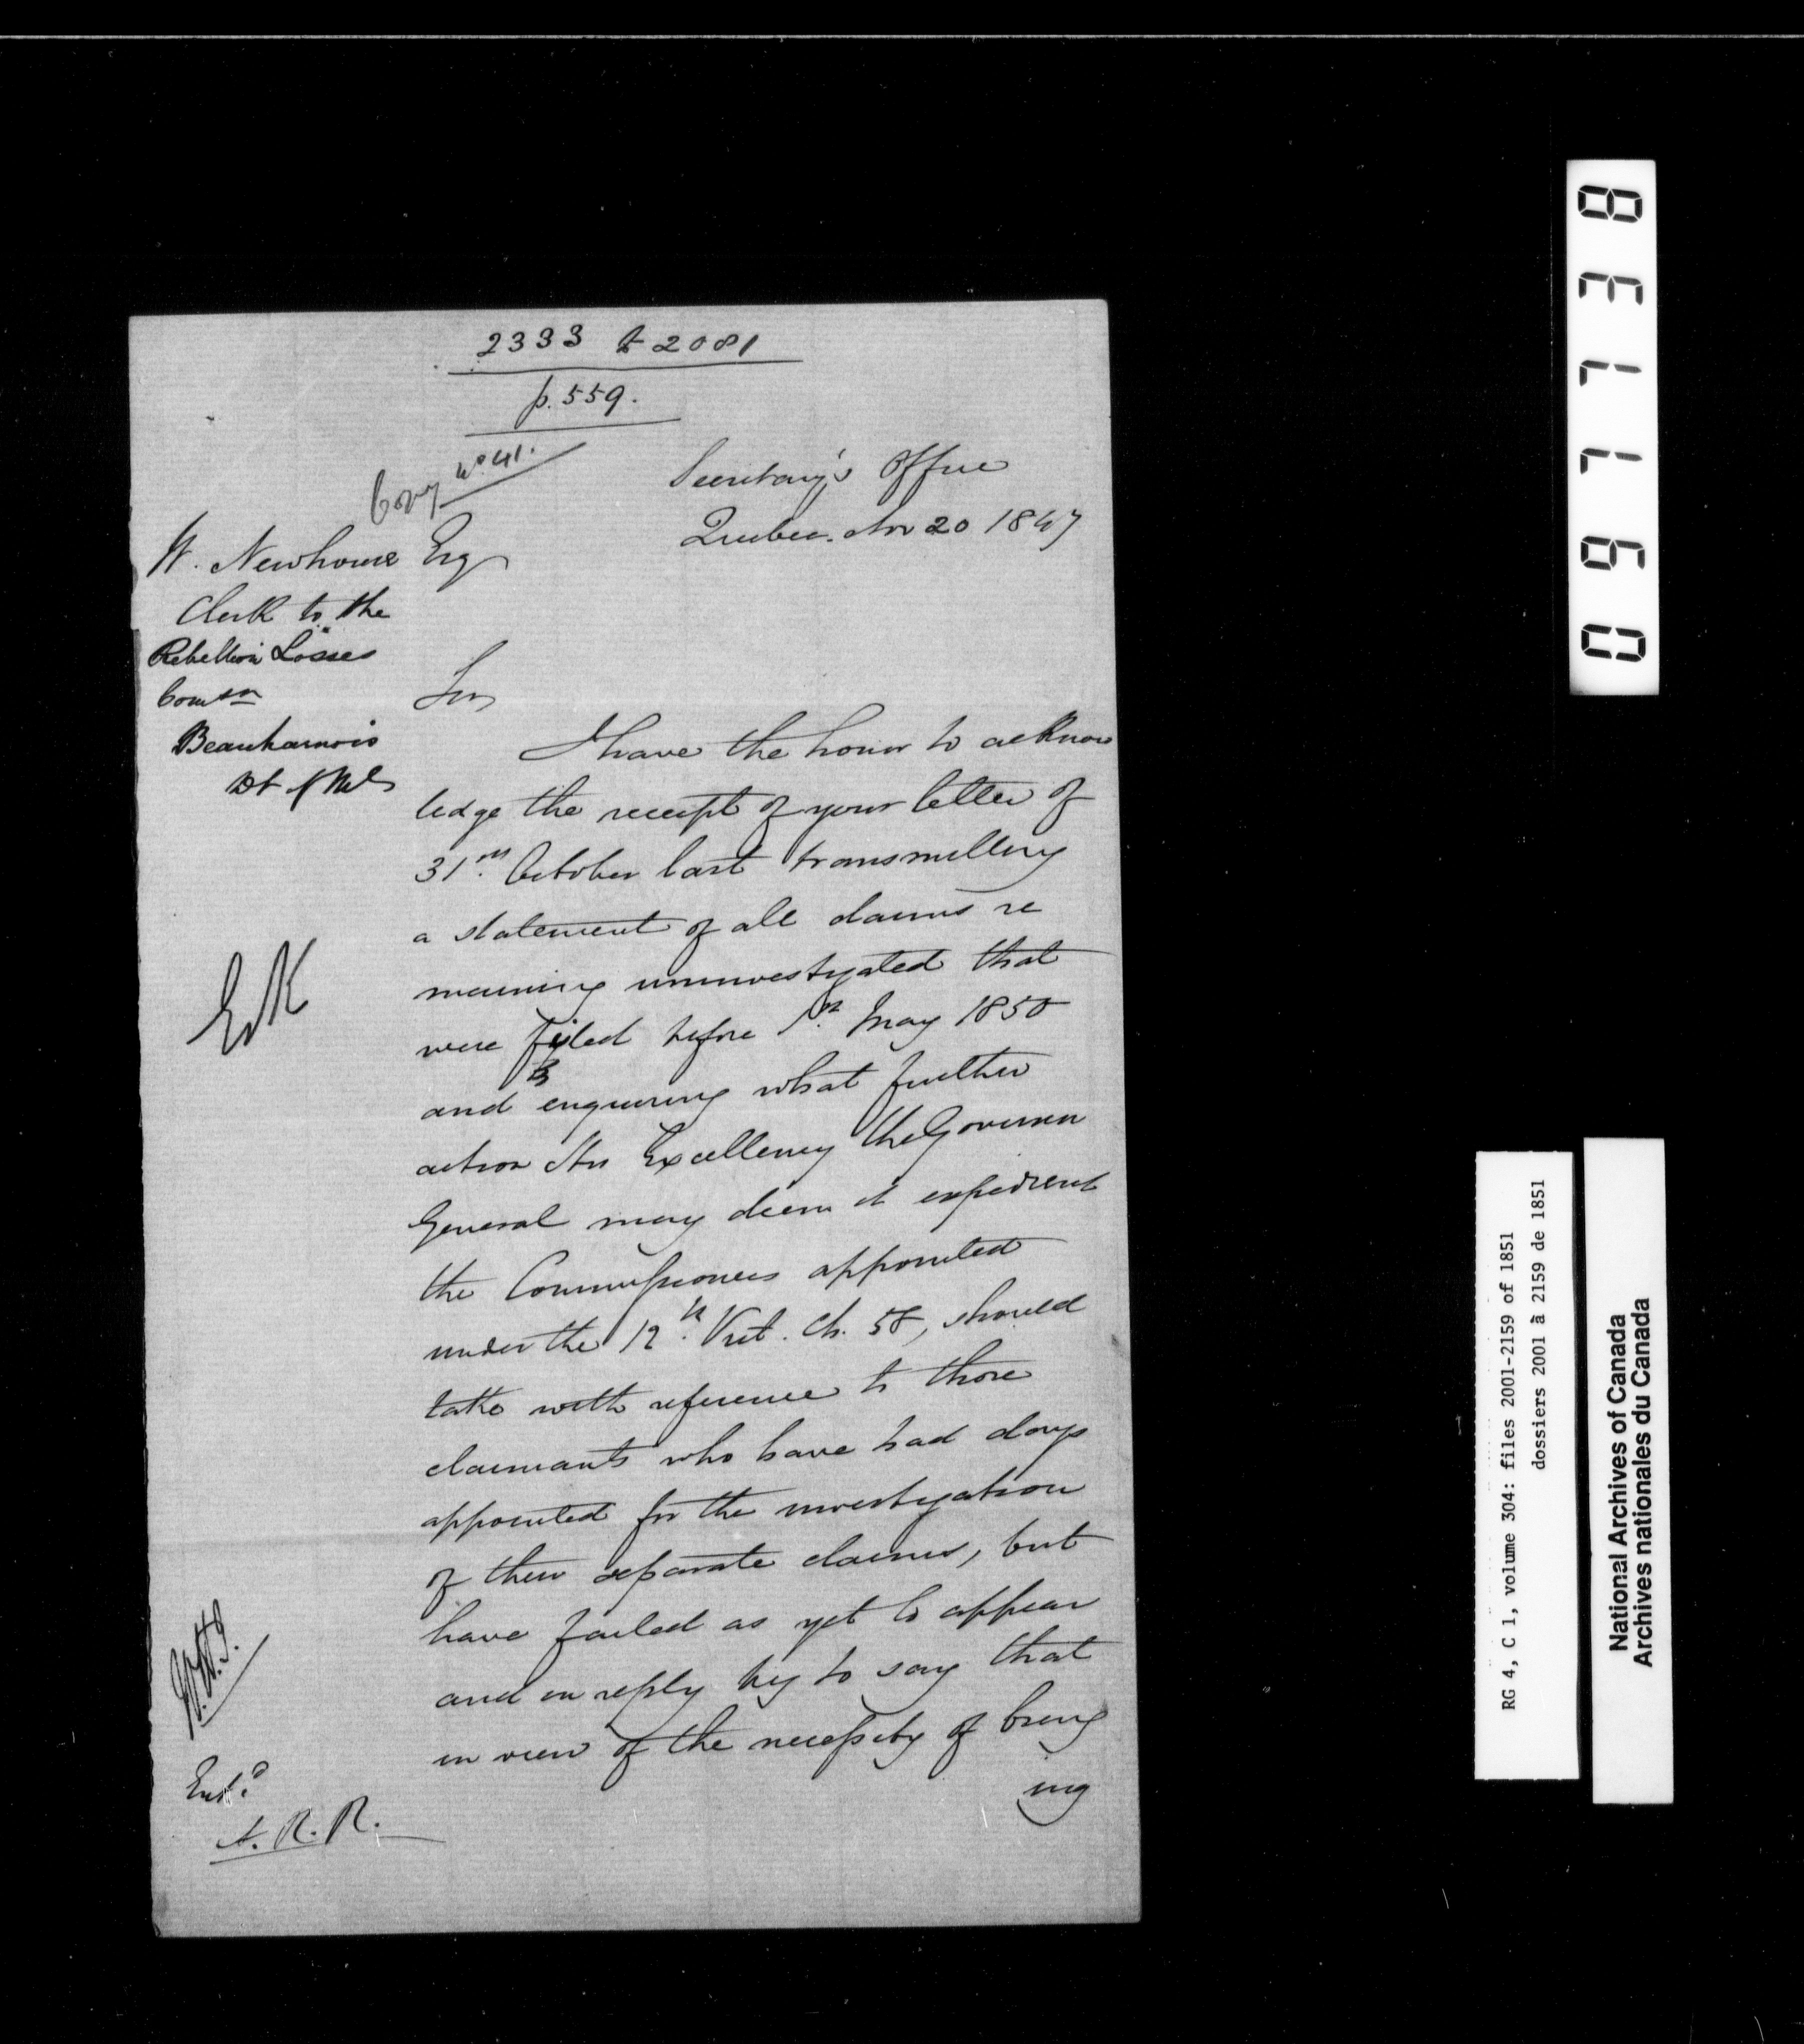 2333 & 2081
p. 559.
Copy No. 41.
Secretary's Office
Quebec. Nov 20 1847
W. Newhouse Esq
Clerk to the
Rebellion Losses
Comsn
Beauharnois
Sir
I have the honor to acknow
ledge the receipt of your letter of
31st October last transmitting
a statement of all claims re
maining uninvestigated that
were fyled before 1st May 1850
and enquiring what further
action His Excellency the Governor
General may deem it expedient
the Commissioners appointed
under the 12th Vict. Ch. 58, should
take with reference to those
claimants who have had days
appointed for the investigation
of their separate claims, but
have failed as yet to appear
and in reply beg to say that
in view of the necessity of bring
ing
EK
Entd
A. R. R.
097738
RG 4, C 1, volume 304: files 2001-2159 of 1851
dossiers 2001 à 2159 de 1851
National Archives of Canada
Archives nationales du Canada